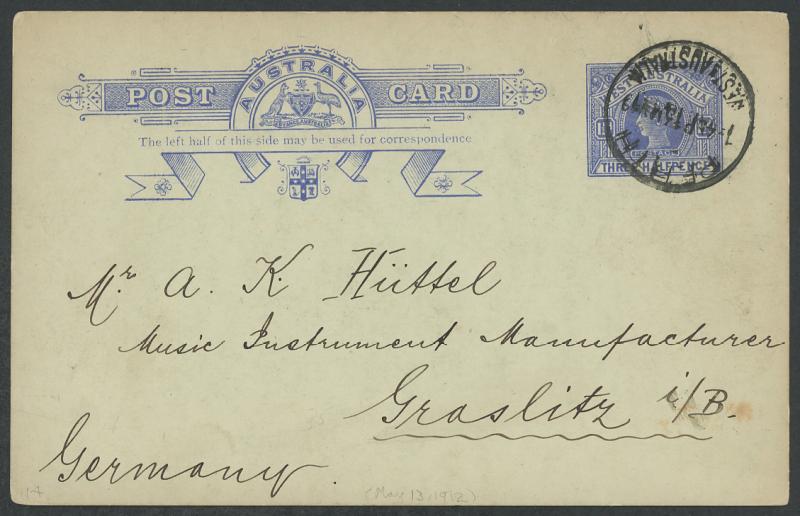 AUSTRALIA
POST CARD
ADVANCE AUSTRALIA
The left half of this side may be used for correspondence
WEST AUSTRALIA
POSTAGE
THREE HALFPENCE
WEST AUSTRALIA
PERTH
Mr. A. K. Hüttel
Music Instrument Manufacturer
Graslitz i/B.
Germany.
(May 13, 1912)